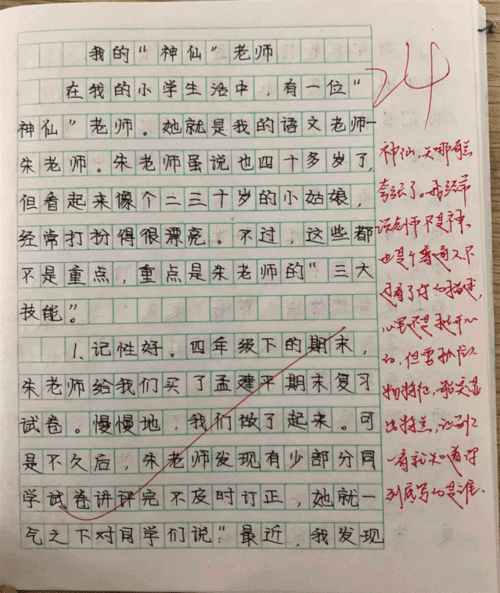 我的“神仙”老师
在我的小学生活中，有一位“
神仙”老师。她就是我的语文老师—
朱老师。朱老师虽说也四十多岁了，
但看起来像个二三十岁的小姑娘，
经常打扮得很漂亮。不过，这些都
不是重点，重点是朱老师的“三大
技能”。
1、记性好。四年级下的期末，
朱老师给我们买了孟建平期末复习
试卷。慢慢地，我们做了起来。可
是不久后，朱老师发现有少部分同
学试卷讲评完不及时订正，她就一
气之下对同学们说“最近，我发现
24
神仙，太
夸张了。我经常
说老师不是神，
也是个普通人。不
过看了你的描述，
心里还是挺开心
的。但要抓住人
物特征，
出特点，让别人
一看就知道你
到底写的是谁。